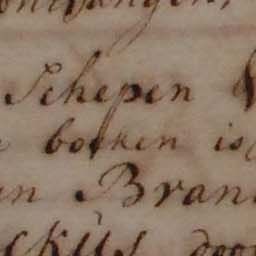 ontvangen,
Schepen
boeken is
an Bran
ckus door